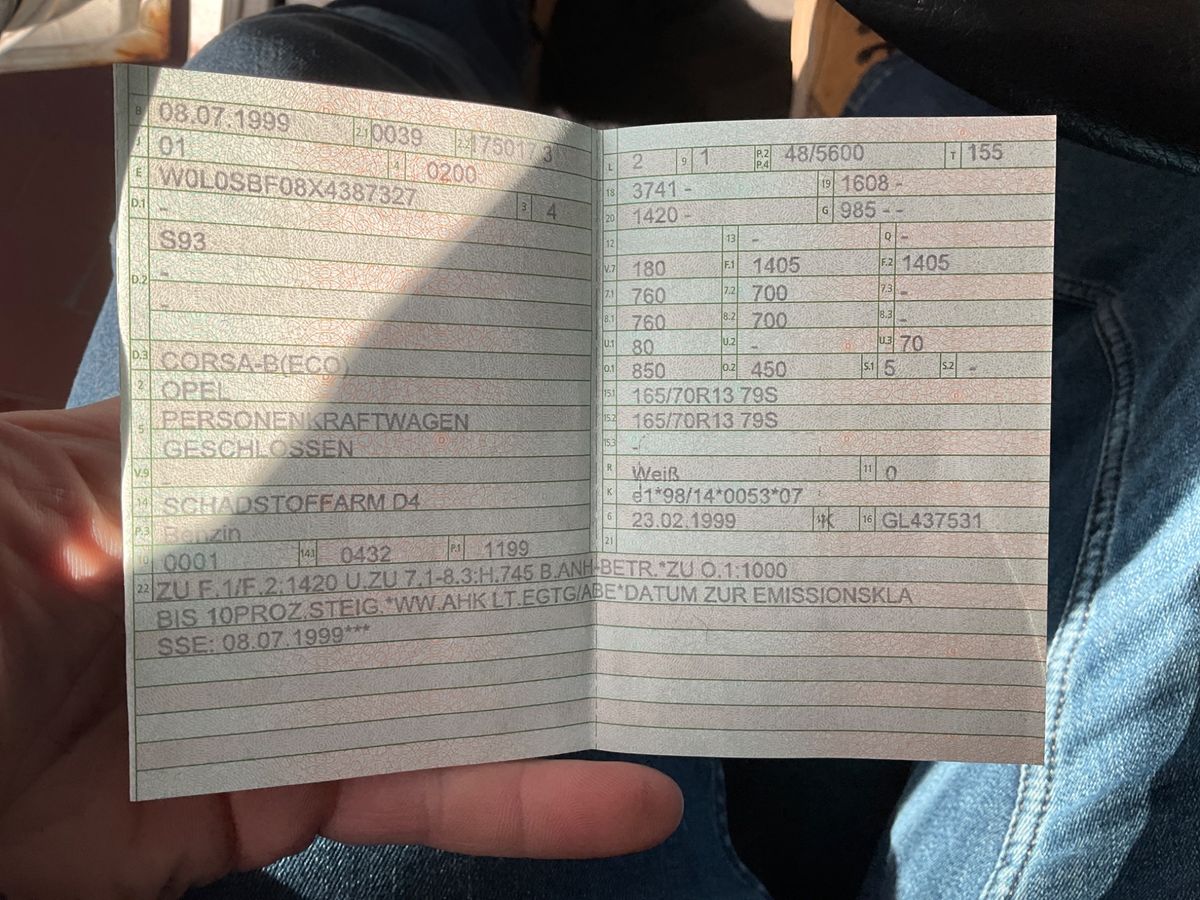 B 08.07.1999 2.1 0039 2.2 175017 3
J 01 4 0200
E W0L0SBF08X4387327 3 4
D.1 -
S93
D.2 -
-
D.3 CORSA-B(ECO)
2 OPEL
5 PERSONENKRAFTWAGEN
GESCHLOSSEN
V.9
14 SCHADSTOFFARM D4
P.3 Benzin
10 0001 14.1 0432 P.1 1199
L 2 9 1 P.2 P.4 48/5600 T 155
18 3741 - 19 1608 -
20 1420 - G 985 - -
12 13 - Q -
V.7 180 F.1 1405 F.2 1405
7.1 760 7.2 700 7.3 -
8.1 760 8.2 700 8.3 -
U.1 80 U.2 - U.3 70
O.1 850 O.2 450 S.1 5 S.2 -
15.1 165/70R13 79S
15.2 165/70R13 79S
15.3 -
R Weiß 11 0
K e1*98/14*0053*07
6 23.02.1999 K 16 GL437531
21
22 ZU F.1/F.2:1420 U.ZU 7.1-8.3:H.745 B.ANH-BETR.*ZU O.1:1000
BIS 10PROZ.STEIG.*WW.AHK LT.EGTG/ABE*DATUM ZUR EMISSIONSKLA
SSE: 08.07.1999***